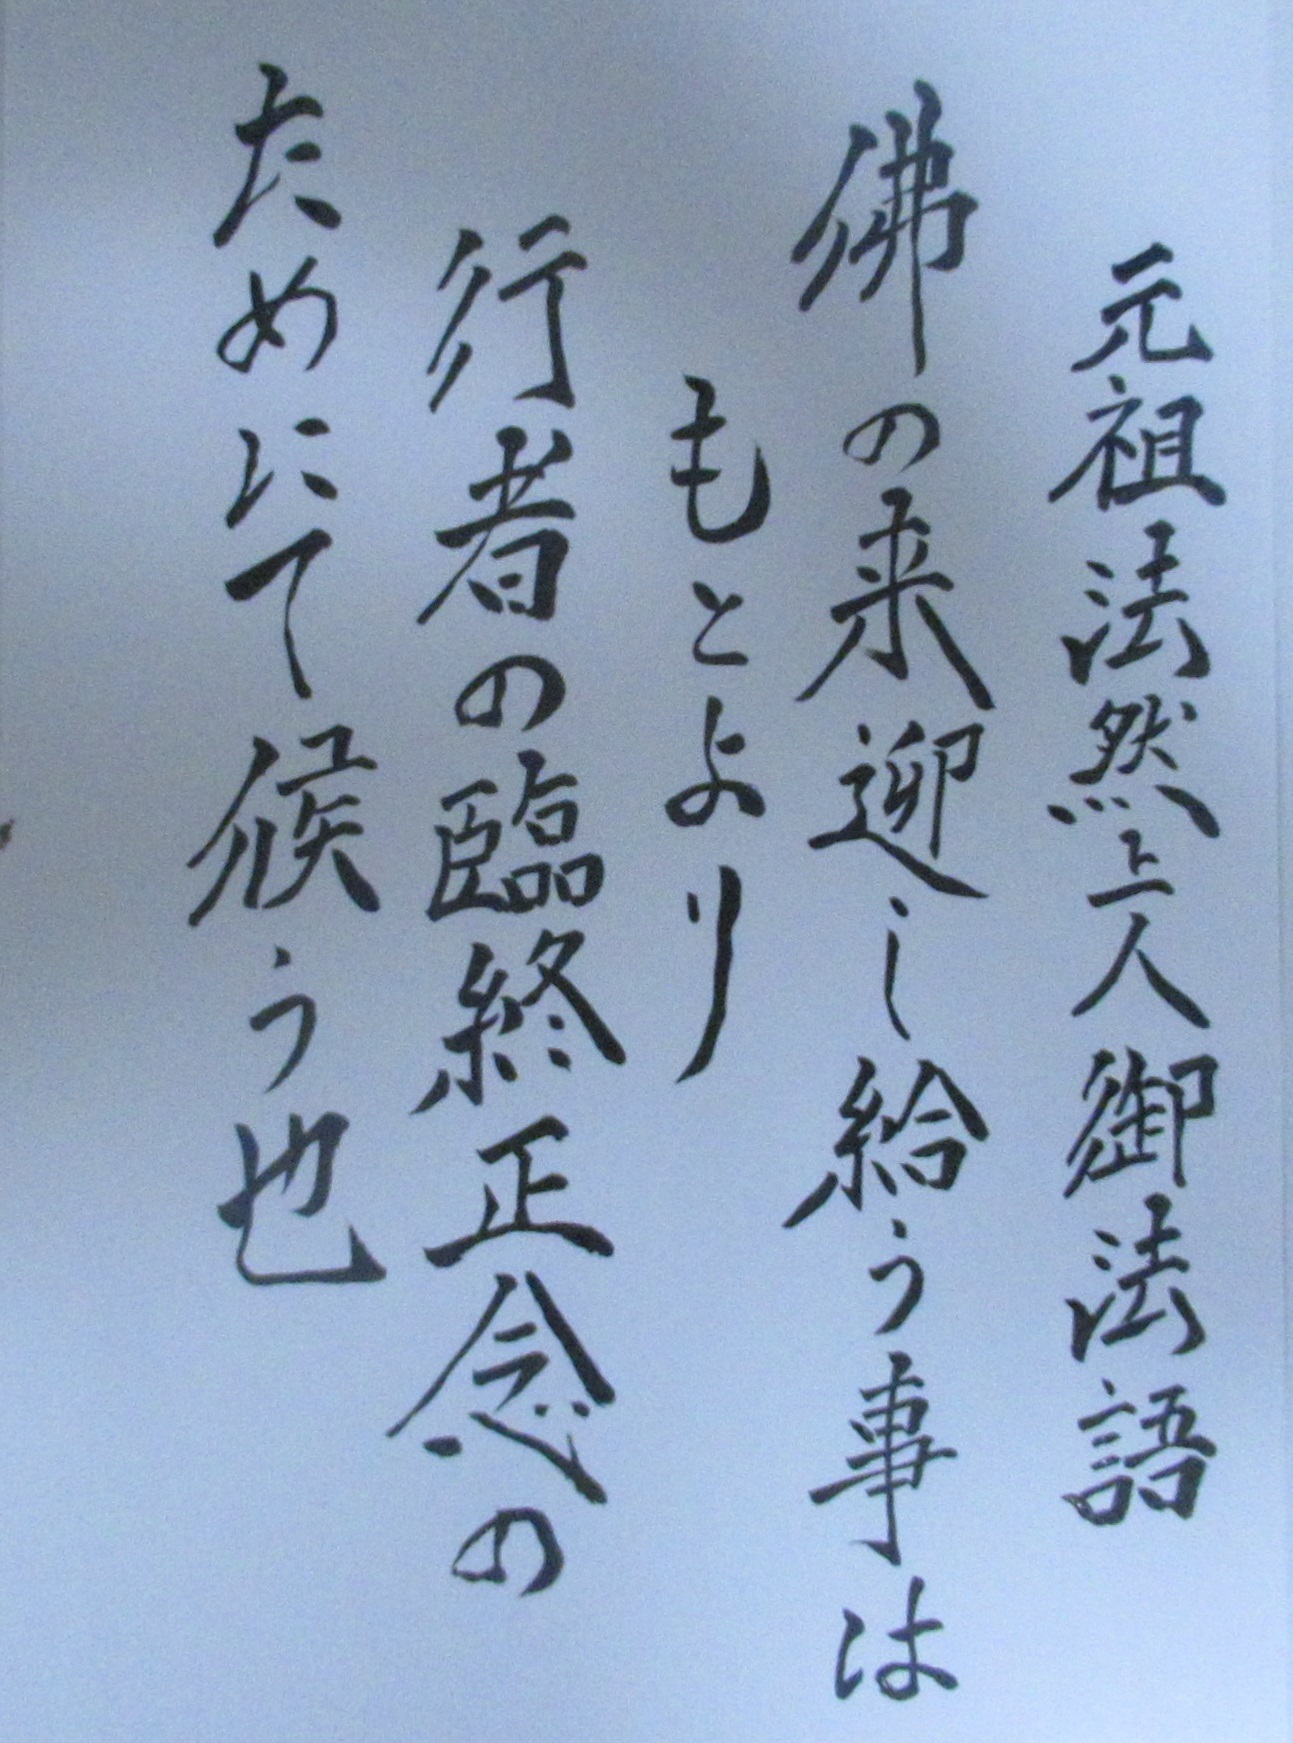 元祖法然上人御法語
佛の来迎し給う事は
もとより
行者の臨終正念の
ためにて候う也